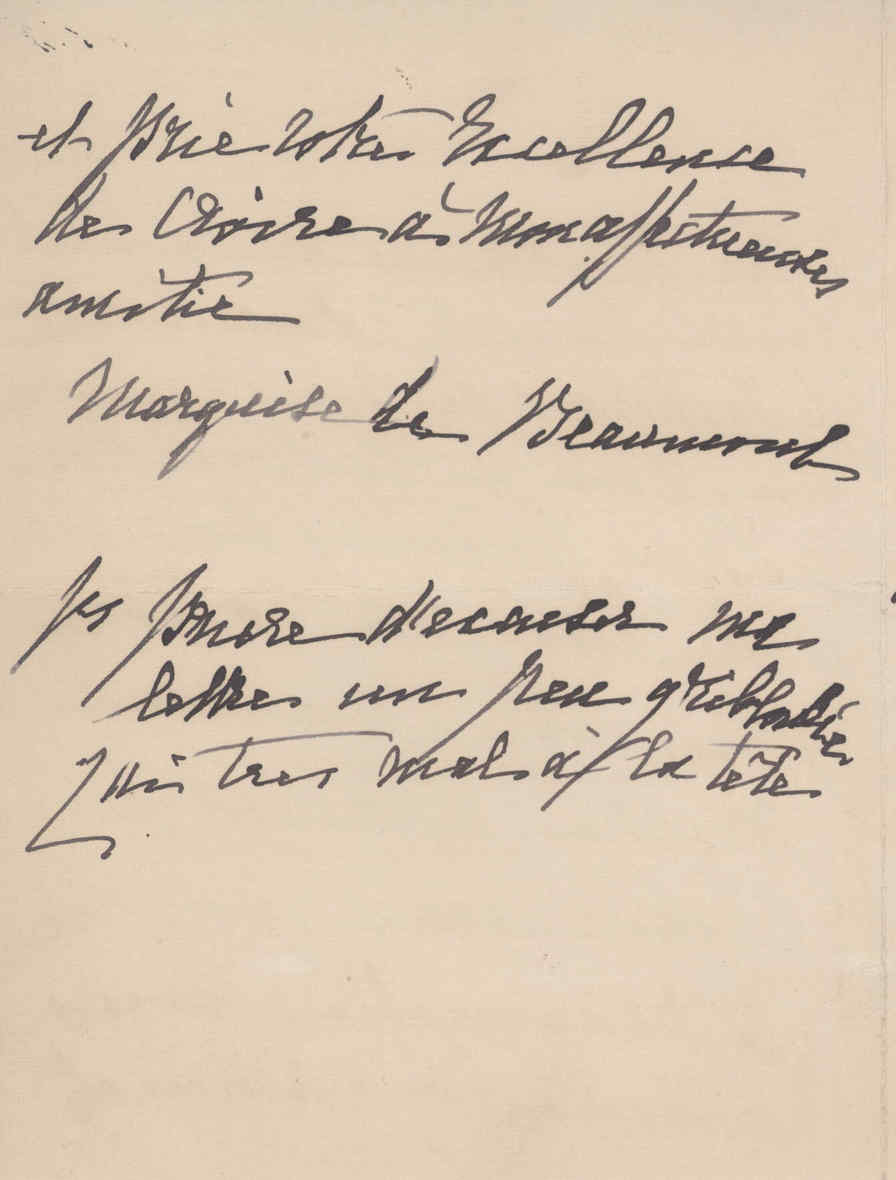 et prie votre Excellence
de croire à mon affectueuse
amitié
Marquise de Beaumont
je d'excuser ma
lettre un peu
j'ai tres mal à la tête